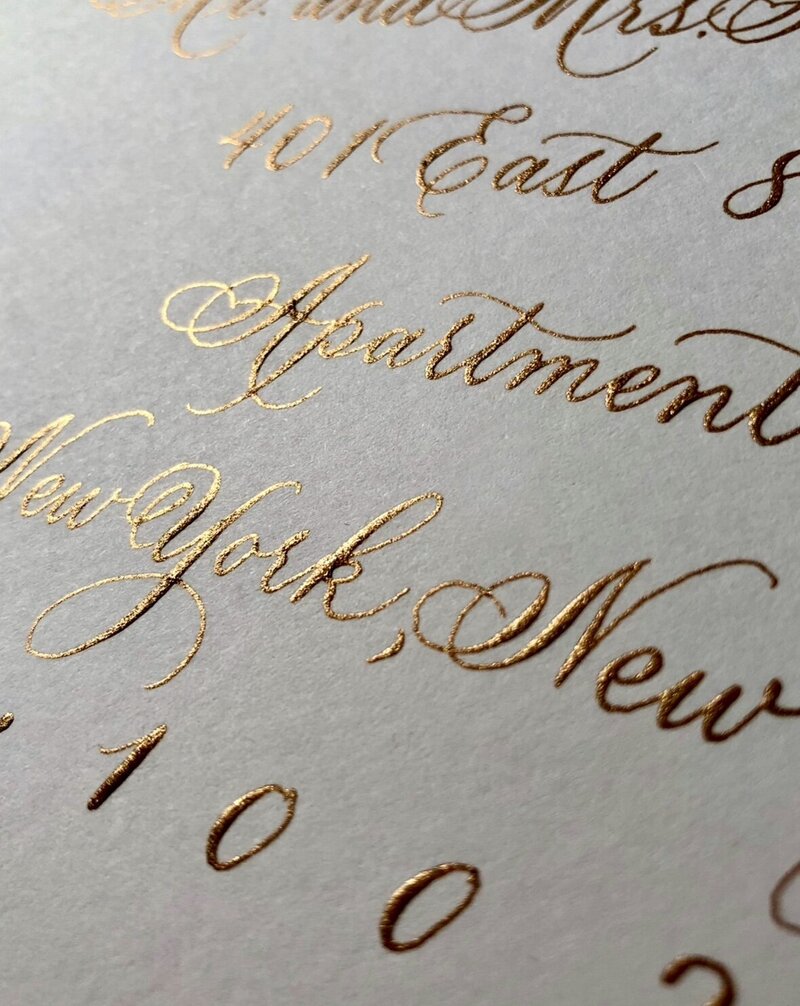 Mr. and Mrs.
401 East 8
Apartment
New York, New
1 0 0 2